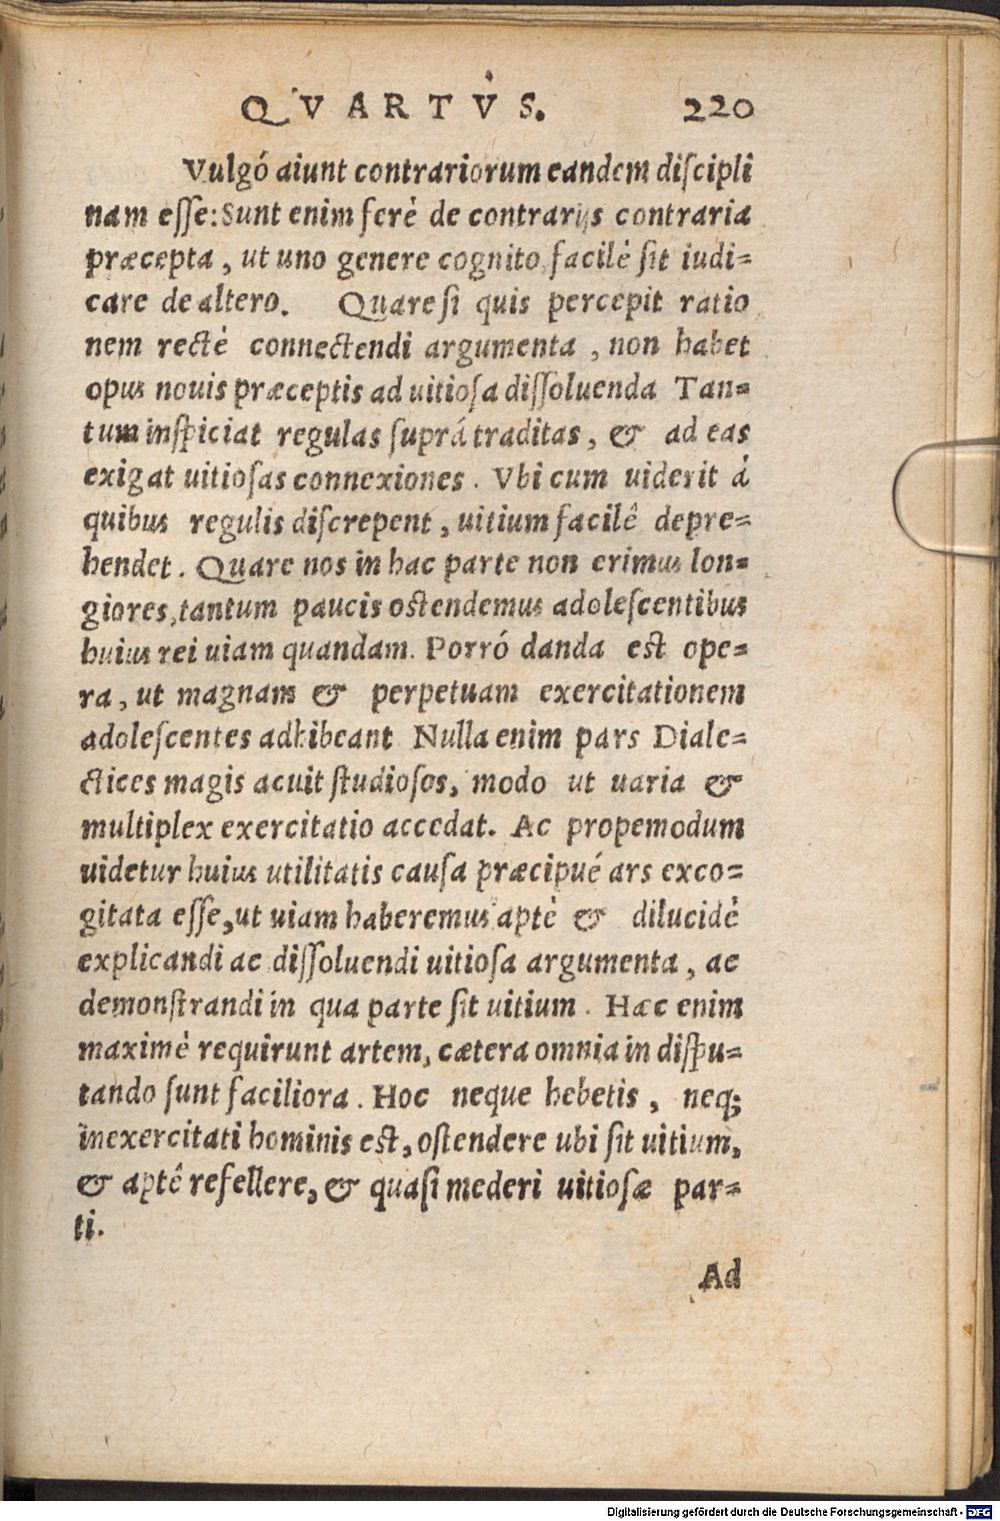 QVARTVS. 220
Vulgó aiunt contrariorum eandem discipli
nam esse: Sunt enim ferè de contrarijs contraria
præcepta, ut uno genere cognito facilè sit iudi=
care de altero. Quare si quis percepit ratio
nem rectè connectendi argumenta, non habet
opus nouis præceptis ad uitiosa dissoluenda Tan=
tum inspiciat regulas suprá traditas, & ad eas
exigat uitiosas connexiones. Vbi cum uiderit á
quibus regulis discrepent, uitium facilê depre=
hendet. Quare nos in hac parte non erimus lon=
giores, tantum paucis ostendemus adolescentibus
huius rei uiam quandam. Porró danda est ope=
ra, ut magnam & perpetuam exercitationem
adolescentes adhibeant Nulla enim pars Diale=
ctices magis acuit studiosos, modo ut uaria &
multiplex exercitatio accedat. Ac propemodum
uidetur huius utilitatis causa præcipué ars exco=
gitata esse, ut uiam haberemus aptè & dilucidè
explicandi ac dissoluendi uitiosa argumenta, ac
demonstrandi in qua parte sit uitium. Hæc enim
maximè requirunt artem, cætera omnia in dispu=
tando sunt faciliora. Hoc neque hebetis, neq;
inexercitati hominis est, ostendere ubi sit uitium,
& aptê refellere, & quasi mederi uitiosæ par=
ti.
Ad
Digitalisierung gefördert durch die Deutsche Forschungsgemeinschaft - DFG